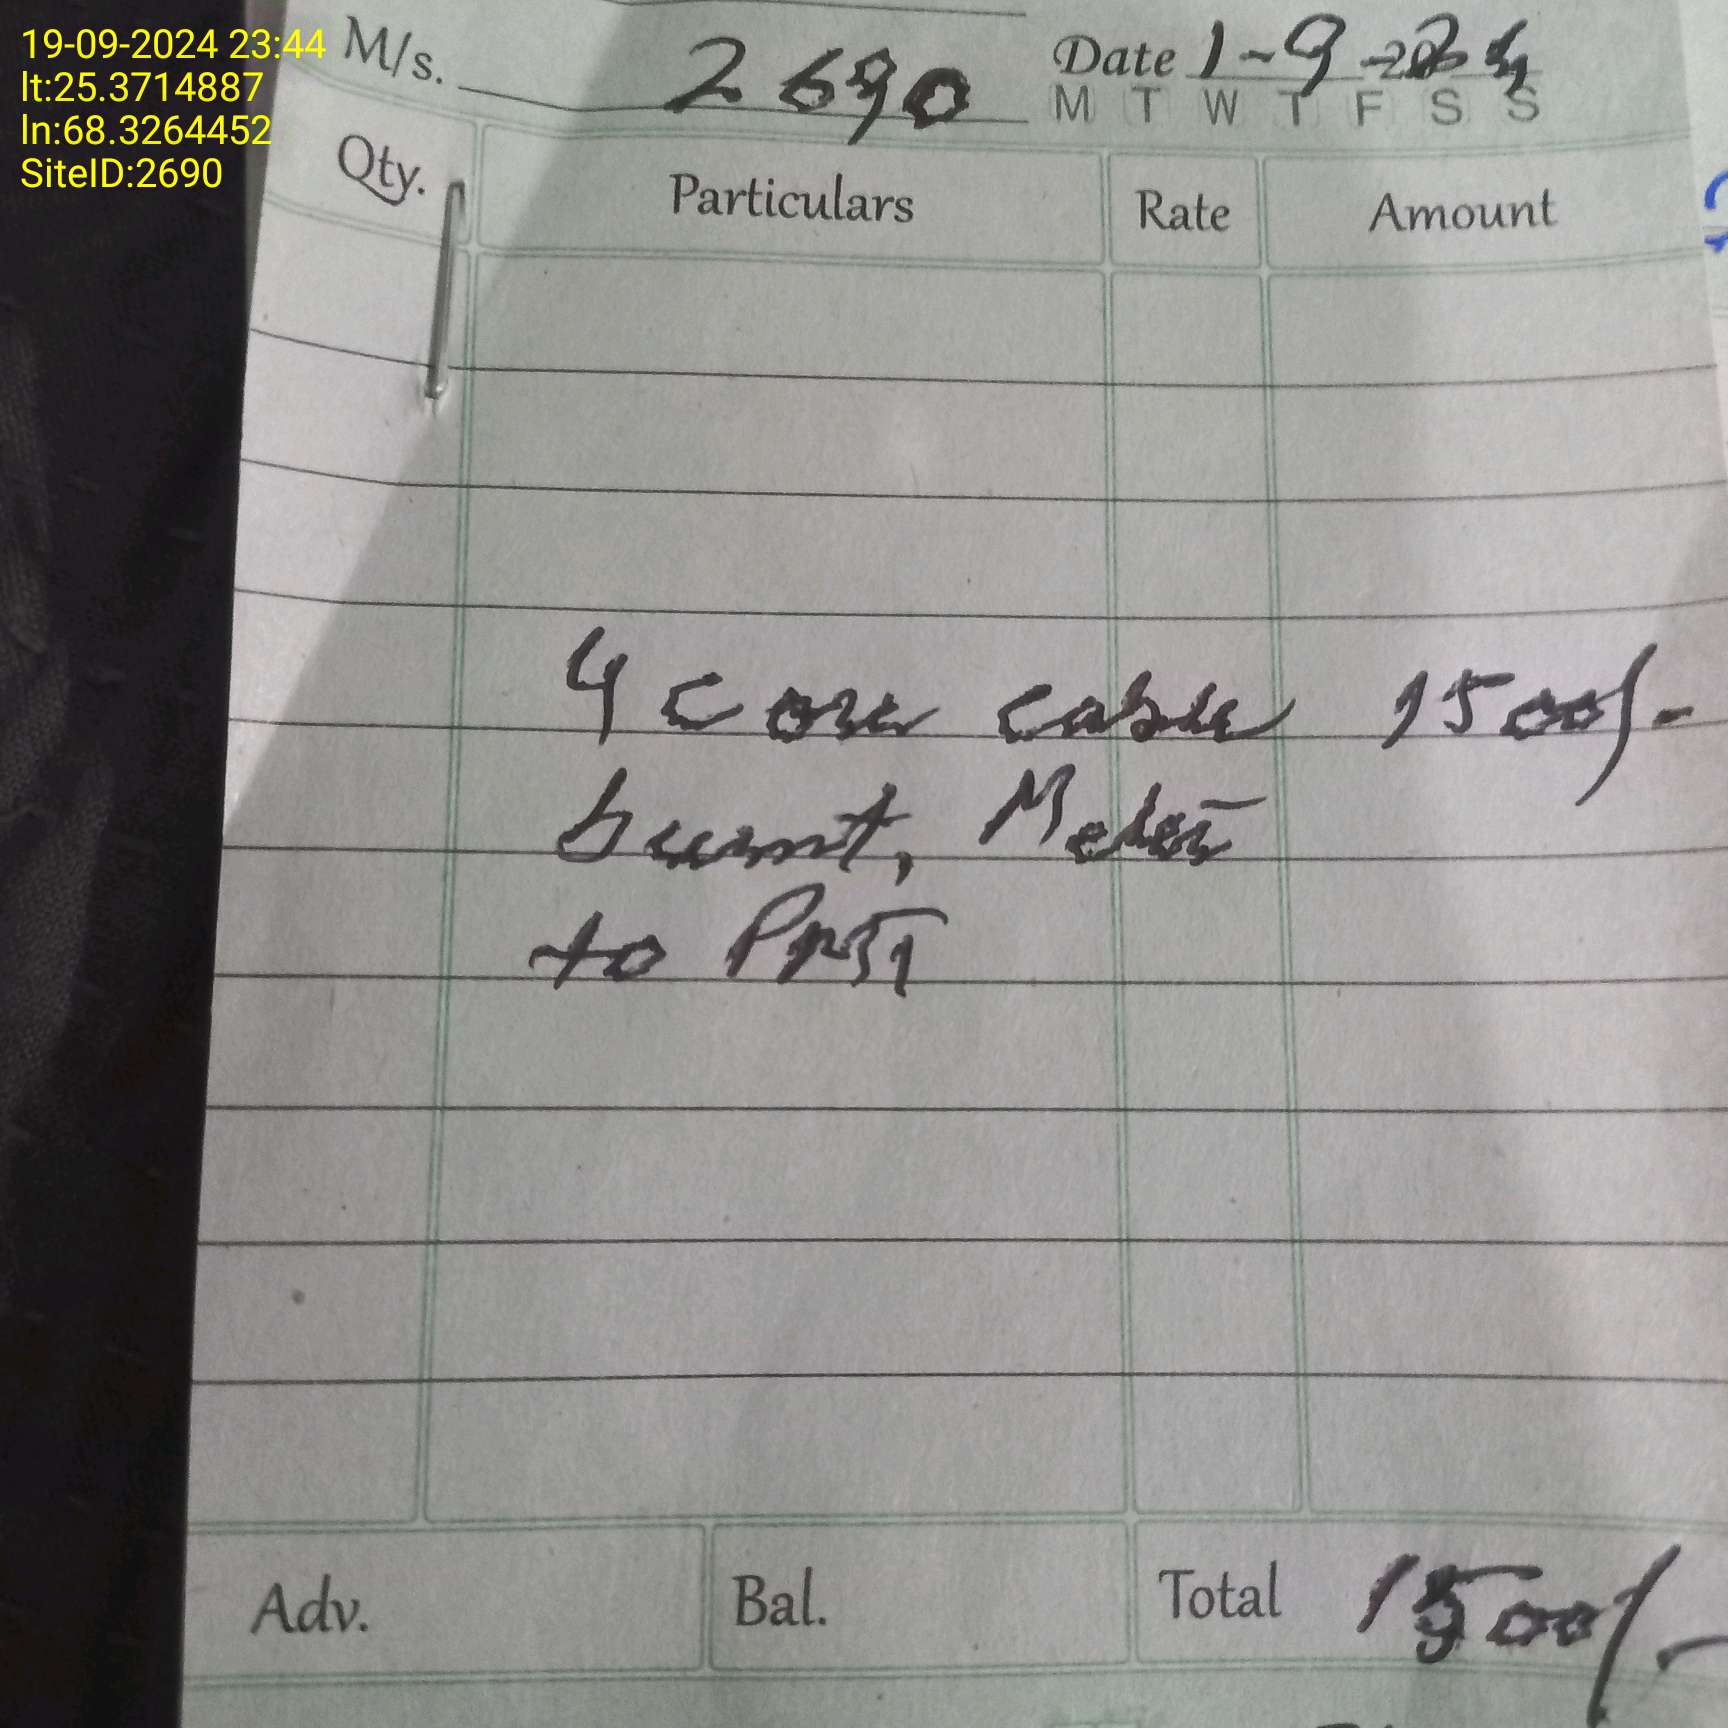 19-09-2024 23:44
lt:25.3714887
ln:68.3264452
SiteID:2690
M/s. 2690 Date 1-9-2024
M T W T F S S
Qty. Particulars Rate Amount
4 core cable 1500/-
burnt, Meter
to
Adv. Bal. Total 1500/-